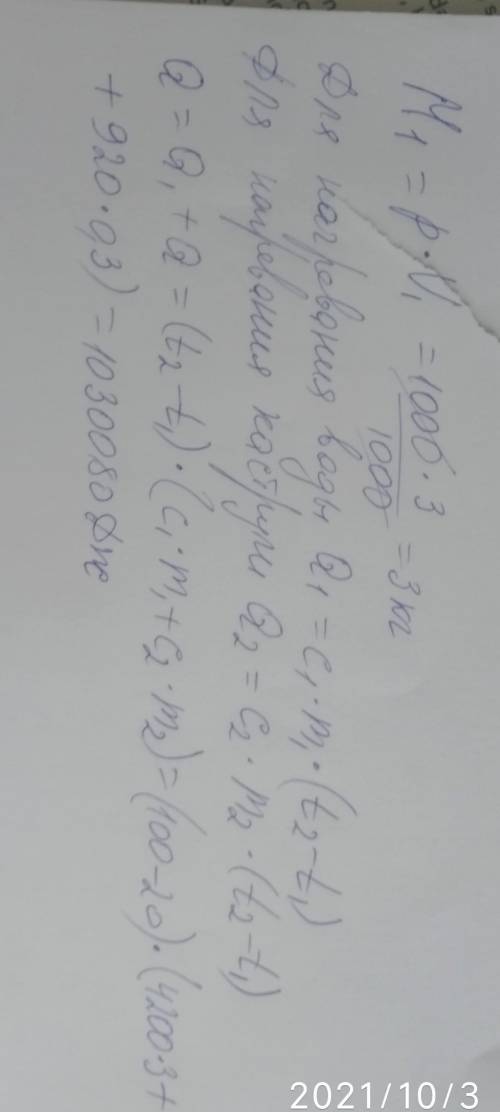 M₁ = ρ · V₁ = 1000 · 3 / 1000 = 3 кг
Для нагревания воды Q₁ = c₁ · m₁ · (t₂ – t₁)
Для нагревания кастрюли Q₂ = c₂ · m₂ · (t₂ – t₁)
Q = Q₁ + Q = (t₂ – t₁) · (c₁ · m₁ + c₂ · m₂) = (100 – 20) · (4200 · 3 +
+ 920 · 0,3) = 1030080 Дж
2021/10/3